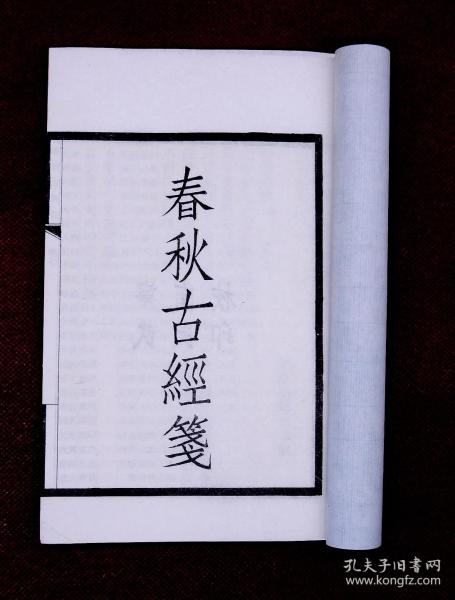 春秋古經箋
孔夫子旧书网
www.kongfz.com